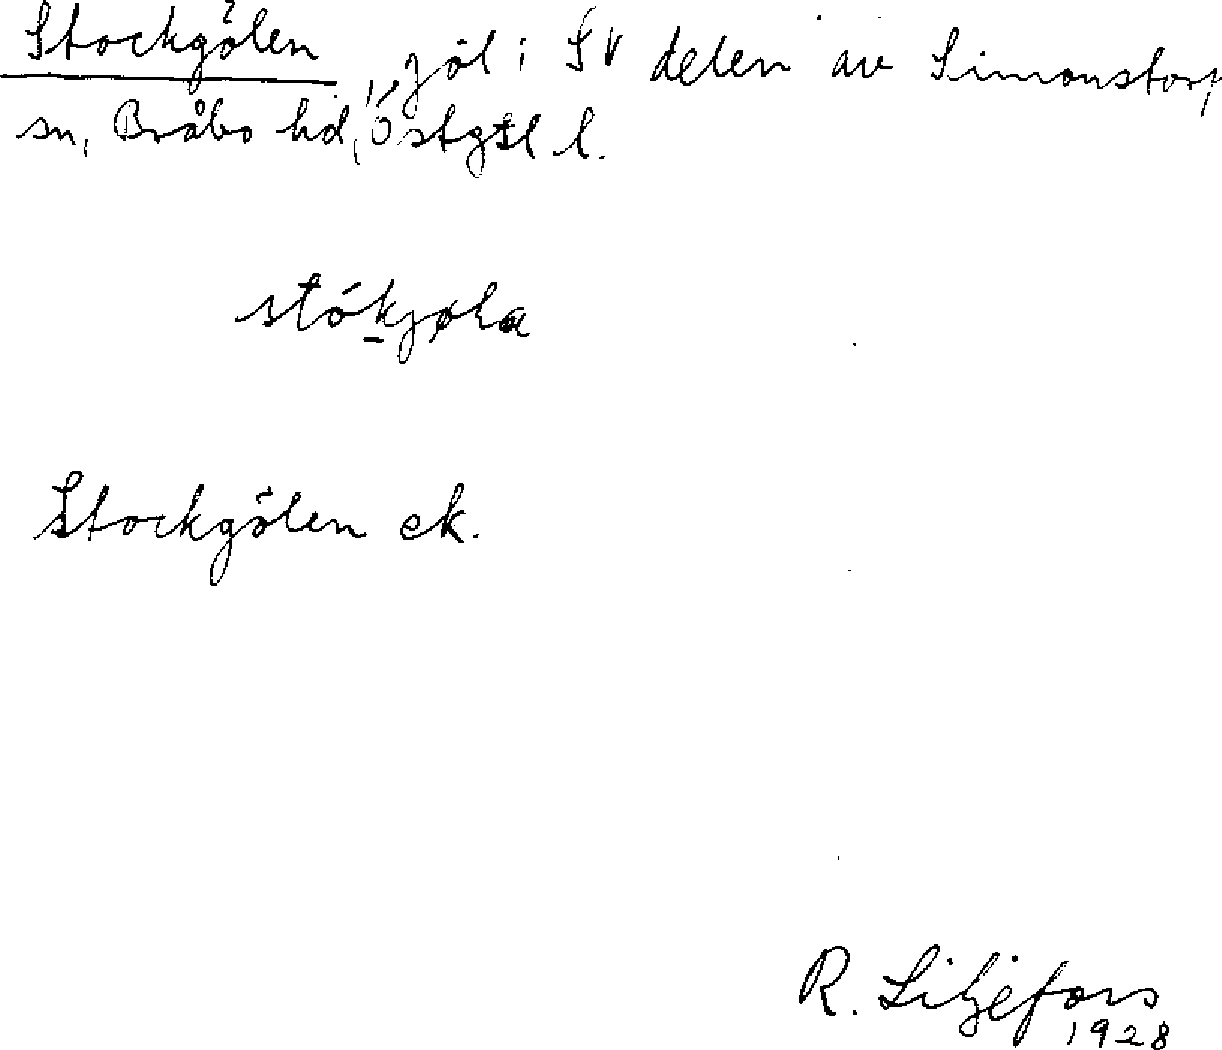 Stockgölen, göl i SV delen av Simonstorp
sn, Bråbo hd, Östgtl l.
stókjøla
Stockgölen ek.
R. Liljefors
1928